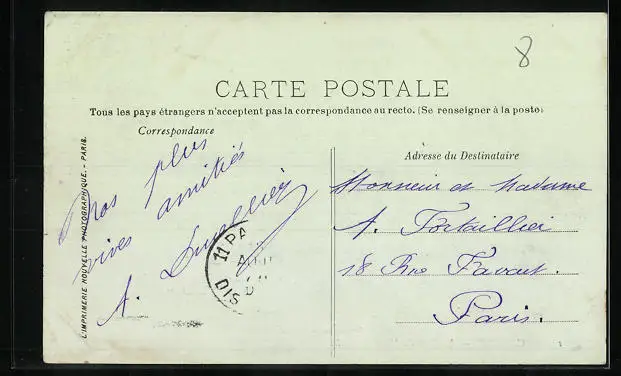 8
CARTE POSTALE
Tous les pays étrangers n'acceptent pas la correspondance au recto. (Se renseigner à la poste)
Correspondance
Adresse du Destinataire
Nos plus
vives amitiés
A.
Monsieur et Madame
A.
18 Rue Favart.
Paris.
11 PA
DIS
L'IMPRIMERIE NOUVELLE PHOTOGRAPHIQUE. - PARIS.